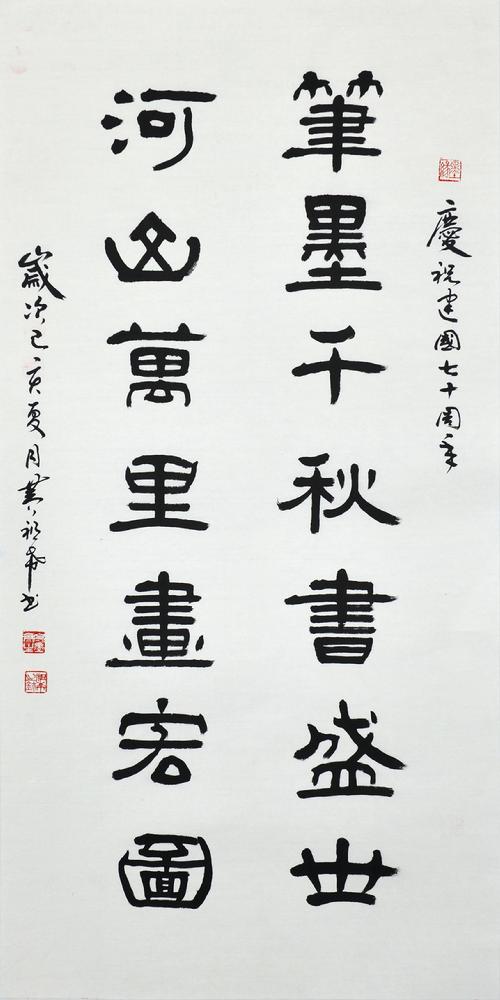 慶祝建國七十周年
筆墨千秋書盛世
河山萬里畫宏圖
歲次己亥夏月黄祖希书